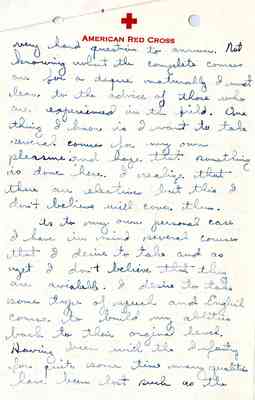 AMERICAN RED CROSS
very hard question to answer. Not
knowing what the complete courses
are for a degree naturally I must
lean to the advice of those who
are experienced in the field. One
thing I know is I want to take
several courses for my own
pleasure and hope that something
is done here. I realize that
there are electives but this I
don't believe will cover them.
As to my own personal case
I have in mind several courses
that I desire to take and as
yet I don't believe that they
are available. I desire to take
some type of speech and English
course to build my abilities
back to their orginal level.
Having been with the Infantry
for quite some time many qualities
have been lost such as the